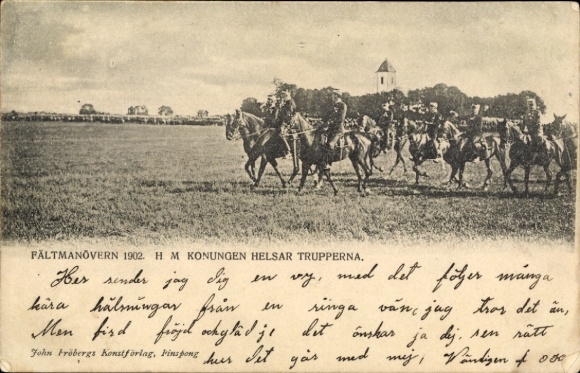 FÄLTMANÖVERN 1902. H M KONUNGEN HELSAR TRUPPERNA.
Her sender jag dig en vy, med det följer många
kära hälsningar från en ringa vän, jag tros det än,
Men fird fröjd och glädje det önskar ja dej. sen rätt
John Fröbergs Konstförlag, Finspong
hur det går med mej,